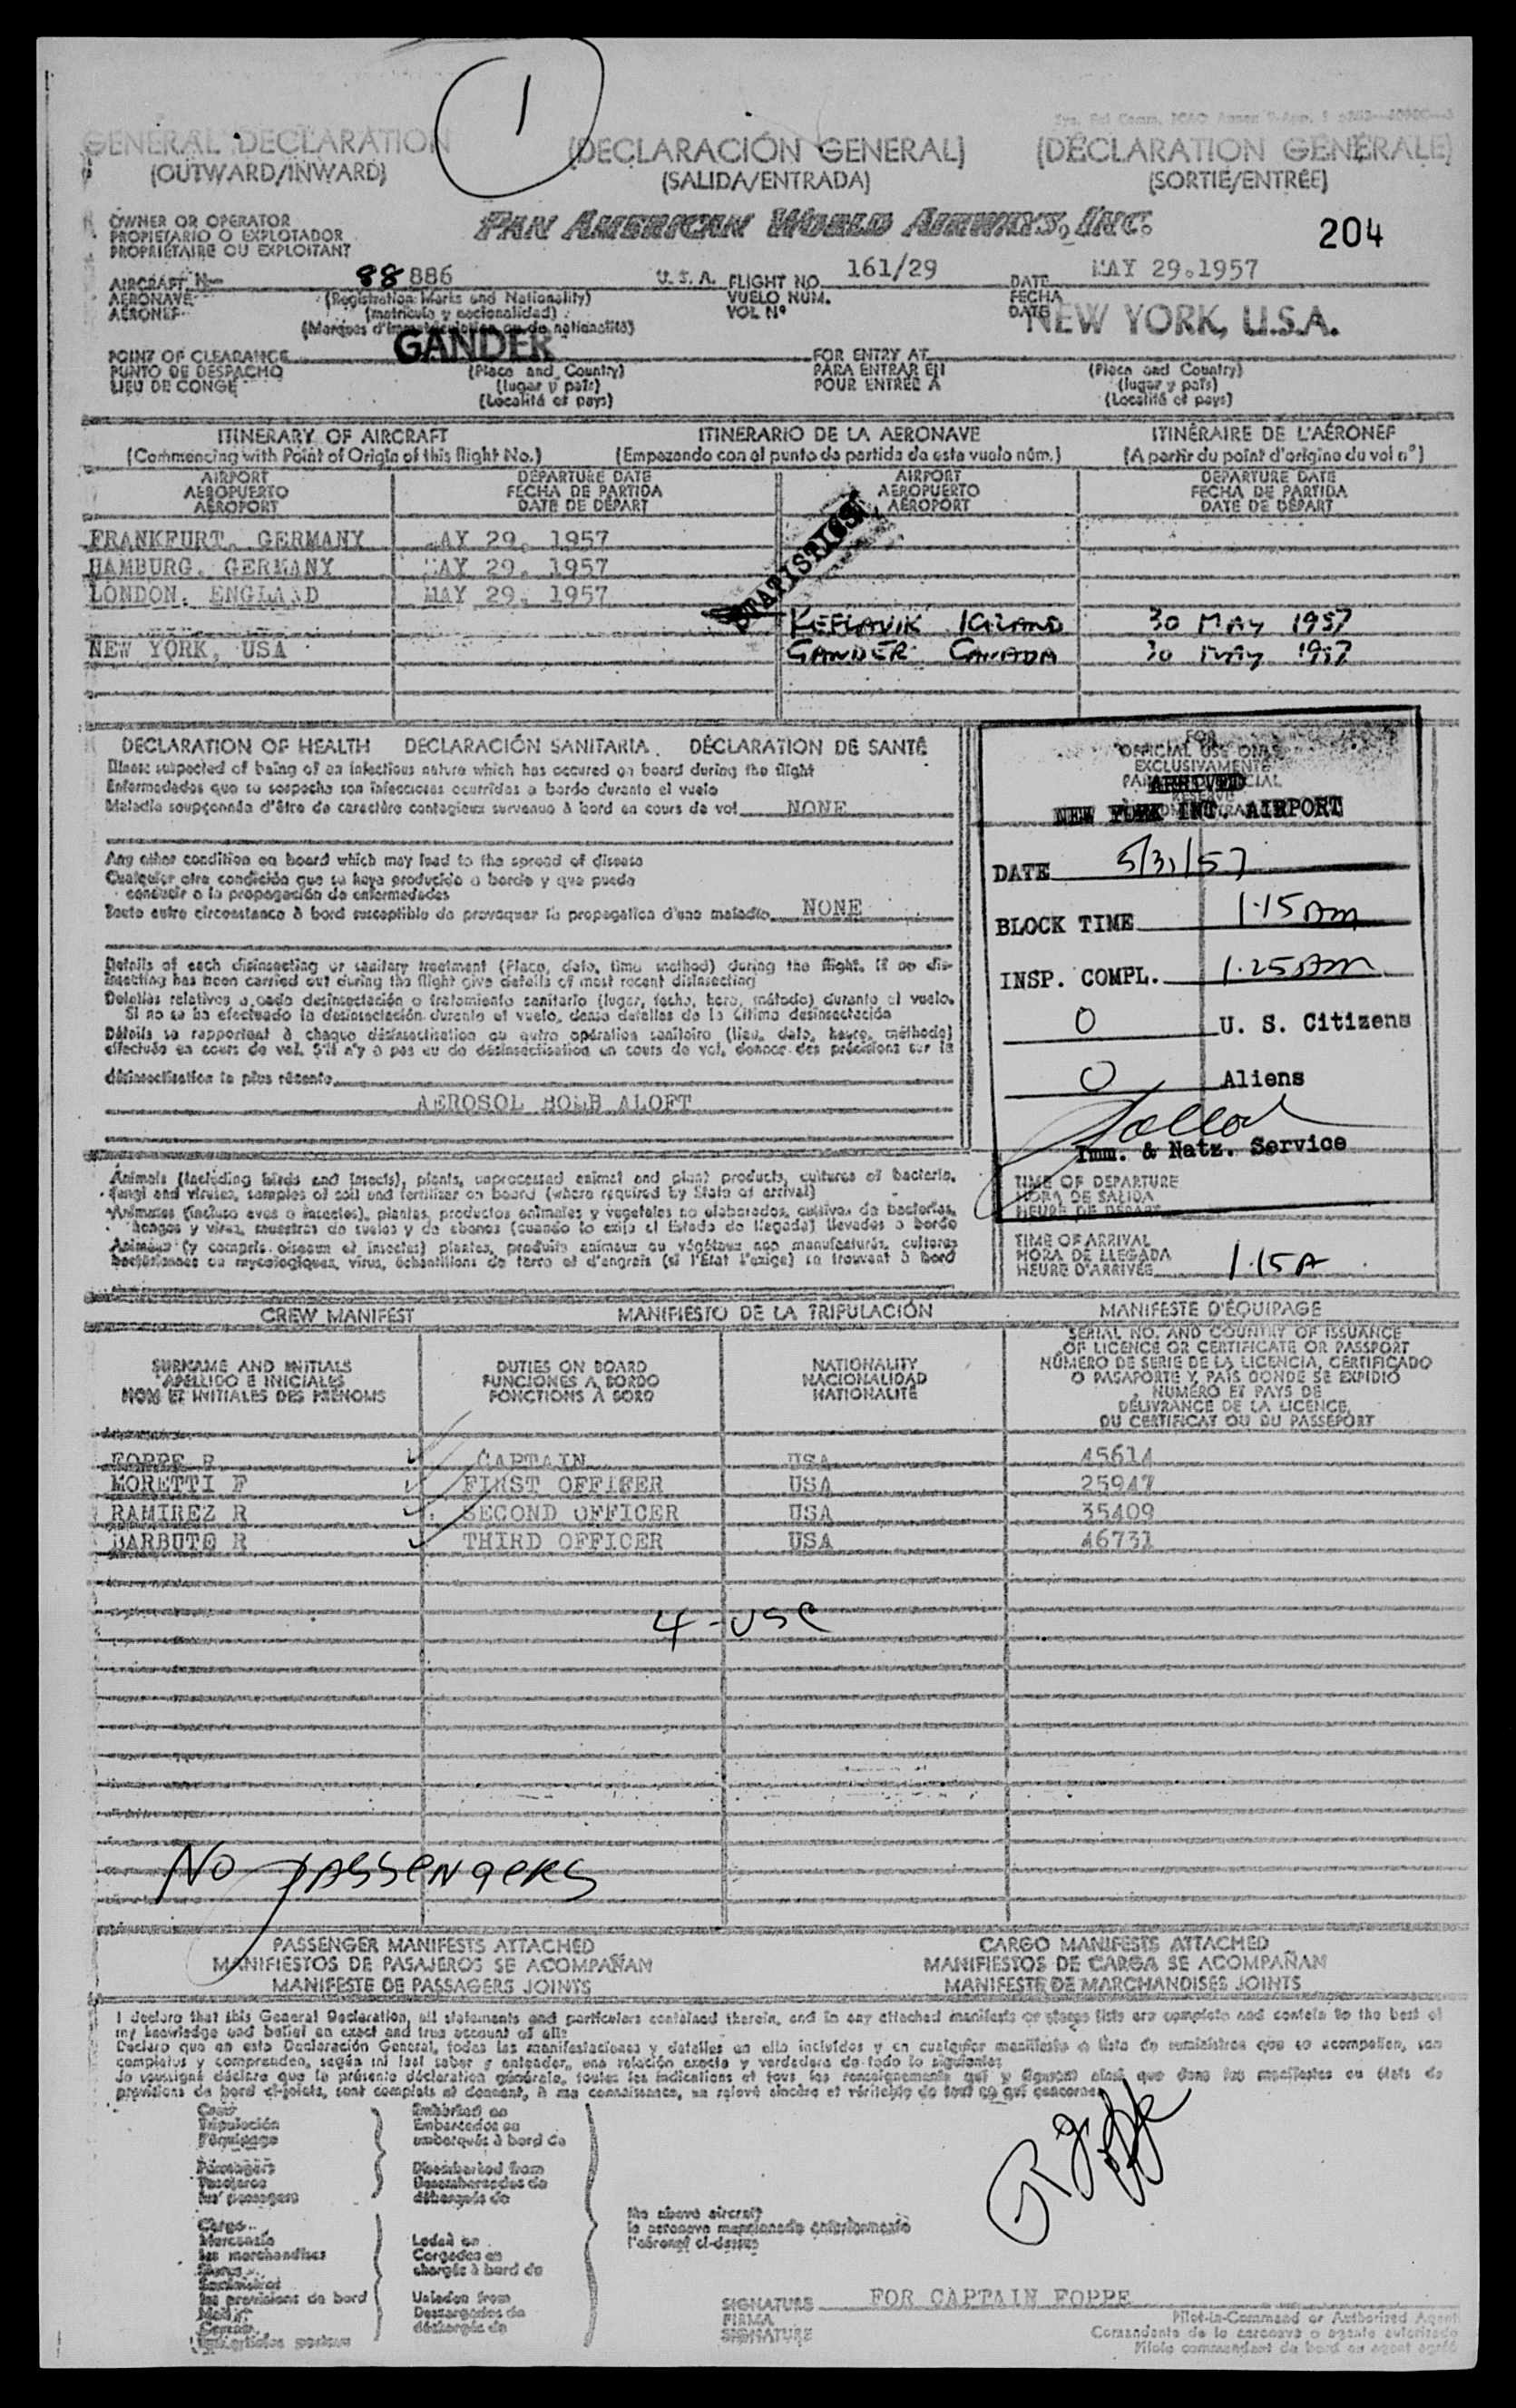 1
GENERAL DECLARATION
(OUTWARD/INWARD)
(DECLARACIÓN GENERAL)
(SALIDA/ENTRADA)
(DÉCLARATION GÉNÉRALE)
(SORTIE/ENTRÉE)
OWNER OR OPERATOR
PROPIETARIO O EXPLOTADOR
PROPRIÉTAIRE OU EXPLOITANT
PAN AMERICAN WORLD AIRWAYS, INC.
204
AIRCRAFT N- 88886 U.S.A. FLIGHT NO. 161/29 DATE MAY 29.1957
AERONAVE (Registration Marks and Nationality) VUELO NUM. FECHA
AÉRONEF (matrícula y nacionalidad) VOL Nº DATE
(Marques d'immatriculation ou de nationalité)
GANDER NEW YORK, U.S.A.
POINT OF CLEARANCE (Place and Country) FOR ENTRY AT (Place and Country)
PUNTO DE DESPACHO (lugar y país) PARA ENTRAR EN (lugar y país)
LIEU DE CONGÉ (Localité et pays) POUR ENTRÉE À (Localité et pays)
ITINERARY OF AIRCRAFT ITINERARIO DE LA AERONAVE ITINÉRAIRE DE L'AÉRONEF
(Commencing with Point of Origin of this flight No.) (Empezando con el punto de partida de este vuelo núm.) (A partir du point d'origine du vol nº)
AIRPORT DEPARTURE DATE AIRPORT DEPARTURE DATE
AEROPUERTO FECHA DE PARTIDA AEROPUERTO FECHA DE PARTIDA
AÉROPORT DATE DE DÉPART AÉROPORT DATE DE DÉPART
STATISTICS
FRANKFURT, GERMANY MAY 29, 1957
HAMBURG, GERMANY MAY 29, 1957
LONDON, ENGLAND MAY 29, 1957
KEFLAVIK ICELAND 30 MAY 1957
NEW YORK, USA GANDER CANADA 30 MAY 1957
DECLARATION OF HEALTH DECLARACIÓN SANITARIA DÉCLARATION DE SANTÉ
Illness suspected of being of an infectious nature which has occured on board during the flight
Enfermedades que se sospecha son infecciosas ocurridas a bordo durante el vuelo
Maladie soupçonnée d'être de caractère contagieux survenue à bord en cours de vol NONE
Any other condition on board which may lead to the spread of disease
Cualquier otra condición que se haya producido a bordo y que pueda
conducir a la propagación de enfermedades
Toute autre circonstance à bord susceptible de provoquer la propagation d'une maladie NONE
Details of each disinsecting or sanitary treatment (Place, date, time method) during the flight. If no dis-
insecting has been carried out during the flight give details of most recent disinsecting
Detalles relativos a cada desinsectación o tratamiento sanitario (lugar, fecha, hora, método) durante el vuelo.
Si no se ha efectuado la desinsectación durante el vuelo, dense detalles de la última desinsectación
Détails se rapportant à chaque désinsectisation ou autre opération sanitaire (lieu, date, heure, méthode)
effectuée en cours de vol. S'il n'y a pas eu de désinsectisation en cours de vol, donner des précisions sur la
désinsectisation la plus récente
AEROSOL BOMB ALOFT
FOR
OFFICIAL USE ONLY
EXCLUSIVAMENTE
ARRIVED
NEW YORK INT. AIRPORT
DATE 5/31/57
BLOCK TIME 1:15 AM
INSP. COMPL. 1:25 AM
0 U. S. Citizens
0 Aliens
Imm. & Natz. Service
Animals (including birds and insects), plants, unprocessed animal and plant products, cultures of bacteria,
fungi and viruses, samples of soil and fertilizer on board (where required by State of arrival)
Animales (incluso aves o insectos), plantas, productos animales y vegetales no elaborados, cultivos de bacterias,
hongos y virus, muestras de suelos y de abonos (cuando lo exija el Estado de llegada) llevados a bordo
Animaux (y compris oiseaux et insectes) plantes, produits animaux ou végétaux non manufacturés, cultures
bactériennes ou mycologiques, virus, échantillons de terre et d'engrais (si l'État l'exige) se trouvant à bord
TIME OF DEPARTURE
HORA DE SALIDA
HEURE DE DÉPART
TIME OF ARRIVAL
HORA DE LLEGADA
HEURE D'ARRIVÉE 1:15 A
CREW MANIFEST MANIFIESTO DE LA TRIPULACIÓN MANIFESTE D'ÉQUIPAGE
SURNAME AND INITIALS
APELLIDO E INICIALES
NOM ET INITIALES DES PRÉNOMS
DUTIES ON BOARD
FUNCIONES A BORDO
FONCTIONS À BORD
NATIONALITY
NACIONALIDAD
NATIONALITÉ
SERIAL NO. AND COUNTRY OF ISSUANCE
OF LICENCE OR CERTIFICATE OR PASSPORT
NÚMERO DE SERIE DE LA LICENCIA, CERTIFICADO
O PASAPORTE Y PAÍS DONDE SE EXPIDIÓ
NUMÉRO ET PAYS DE
DÉLIVRANCE DE LA LICENCE,
DU CERTIFICAT OU DU PASSEPORT
FOPPE R CAPTAIN USA 45614
MORETTI F FIRST OFFICER USA 25947
RAMIREZ R SECOND OFFICER USA 35409
BARBUTO R THIRD OFFICER USA 46731
4-USC
No passengers
PASSENGER MANIFESTS ATTACHED CARGO MANIFESTS ATTACHED
MANIFIESTOS DE PASAJEROS SE ACOMPAÑAN MANIFIESTOS DE CARGA SE ACOMPAÑAN
MANIFESTE DE PASSAGERS JOINTS MANIFESTE DE MARCHANDISES JOINTS
I declare that this General Declaration, all statements and particulars contained therein, and in any attached manifests or stores lists are complete and contain to the best of
my knowledge and belief an exact and true account of all:
Declaro que en esta Declaración General, todas las manifestaciones y detalles en ella incluidos y en cualquier manifiesto o lista de suministros que se acompañen, son
completos y comprenden, según mi leal saber y entender, una relación exacta y verdadera de todo lo siguiente:
Je soussigné déclare que la présente déclaration générale, toutes les indications et tous les renseignements qui y figurent ainsi que dans les manifestes ou états de
provisions de bord ci-joints, sont complets et donnent, à ma connaissance, un relevé sincère et véritable de tout ce qui concerne
Crew
Tripulación
l'équipage
Passengers
Pasajeros
les passagers
Embarked on
Embarcados en
embarqués à bord de
Disembarked from
Desembarcados de
débarqués de
Cargo
Mercancía
les marchandises
Stores
Suministros
les provisions de bord
Mail
Correo
Laden on
Cargados en
chargés à bord de
Unladen from
Descargados de
déchargés de
the above aircraft
la aeronave mencionada anteriormente
l'aéronef ci-dessus
R J Foppe
SIGNATURE FOR CAPTAIN FOPPE
FIRMA
SIGNATURE
Pilot-in-Command or Authorized Agent
Comandante de la aeronave o agente autorizado
Pilote commandant de bord ou agent agréé